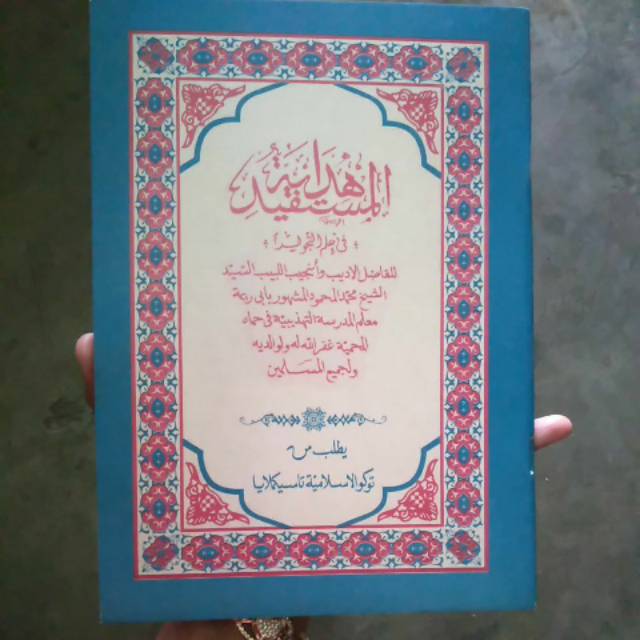 هداية
المستفيد
في علم التجويد
للفاضل الاديب والنجيب اللبيب السيد
الشيخ محمد المحمود المشهور بابي ريمة
معلم المدرسة التهذيبية في حماه
المحمية غفر الله له ولوالديه
ولجميع المسلمين
يطلب من
توكو الاسلامية تاسيكملايا